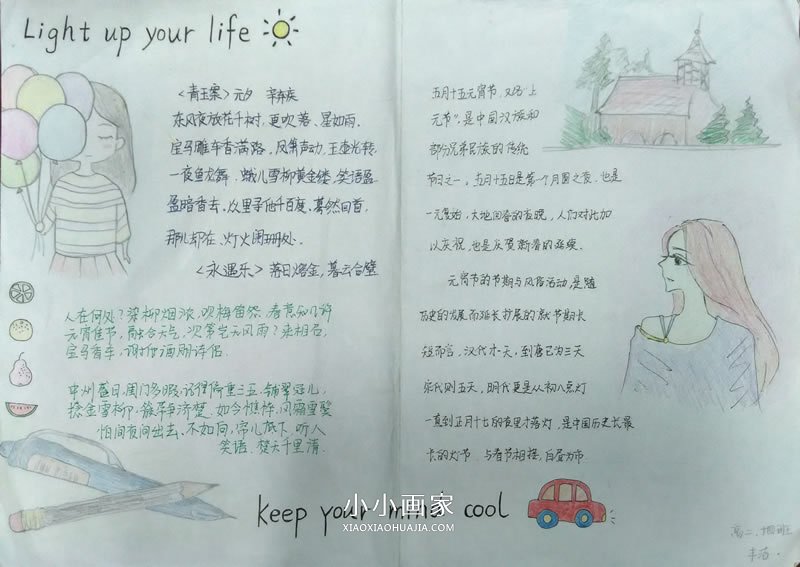 Light up your life
《青玉案》元夕 辛弃疾
东风夜放花千树，更吹落、星如雨。
宝马雕车香满路。凤箫声动，玉壶光转，
一夜鱼龙舞。蛾儿雪柳黄金缕，笑语盈
盈暗香去。众里寻他千百度，蓦然回首，
那儿却在、灯火阑珊处。
《永遇乐》落日熔金，暮云合璧
人在何处？染柳烟浓，吹梅笛怨，春意知几许
元宵佳节，融合天气，次第岂无风雨？来相召，
宝马香车，谢他酒朋诗侣。
中州盛日，闺门多暇，记得偏重三五。铺翠冠儿，
捻金雪柳，簇带争济楚。如今憔悴，风霜
怕间夜间出去。不如向，帘儿底下，听人
笑语。
五月十五元宵节，又名"上
元节"，是中国汉族和
部分兄弟民族的传统
节日之一，五月十五日是第一个月圆之夜，也是
一元复始，大地回春的夜晚，人们对此加
以庆祝，也是庆贺新春的延续。
元宵节的节期与风俗活动，是随
历史的发展而延长扩展的。就节期长
短而言，汉代才一天，到唐已为三天
宋代则五天，明代更是从初八点灯
一直到正月十七的夜里才落灯，是中国历史长最
长的灯节，与春节相接，白昼为市
keep your mind cool
小小画家
XIAOXIAOHUAJIA.COM
高二.